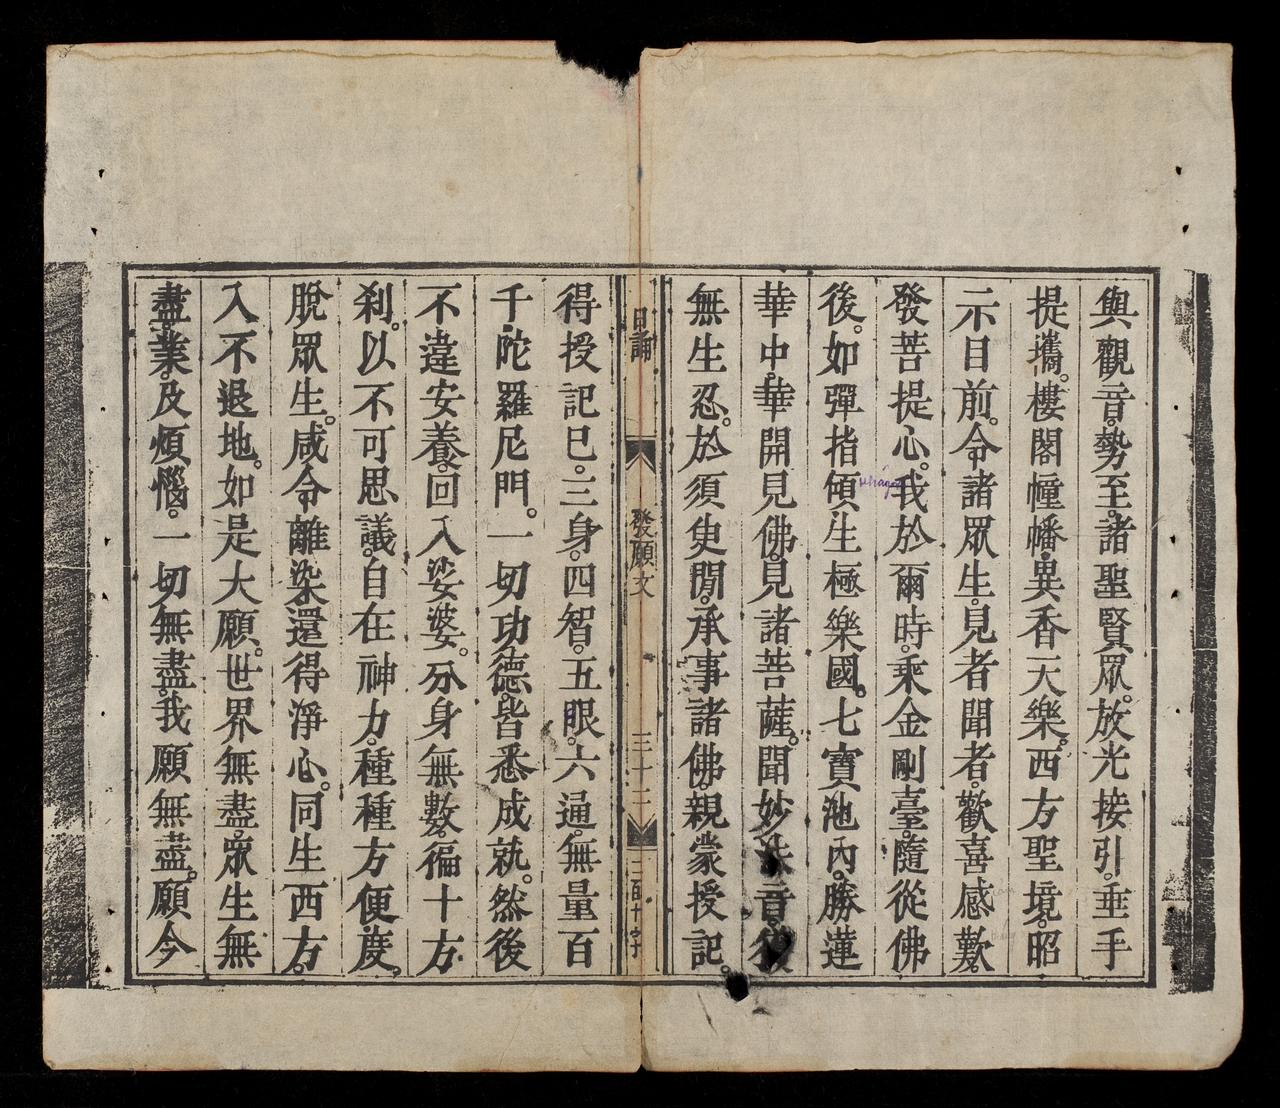 與觀音。勢至。諸聖賢眾。放光接引。垂手
提攜。樓閣幢幡。異香天樂。西方聖境。昭
示目前。令諸眾生。見者聞者。歡喜感歎。
發菩提心。我於爾時。乘金剛臺。隨從佛
後。如彈指傾。生極樂國。七寶池內。勝蓮
華中。華開見佛。見諸菩薩。聞妙法音。獲
無生忍。於須臾間。承事諸佛。親蒙授記。
日誦 發願文 三十三 二百十六
得授記已。三身。四智。五眼。六通。無量百
千陀羅尼門。一切功德。皆悉成就。然後
不違安養。回入娑婆。分身無數。徧十方
剎。以不可思議。自在神力。種種方便。度
脫眾生。咸令離染。還得淨心。同生西方。
入不退地。如是大願。世界無盡。眾生無
盡。業。及煩惱。一切無盡。我願無盡。願今